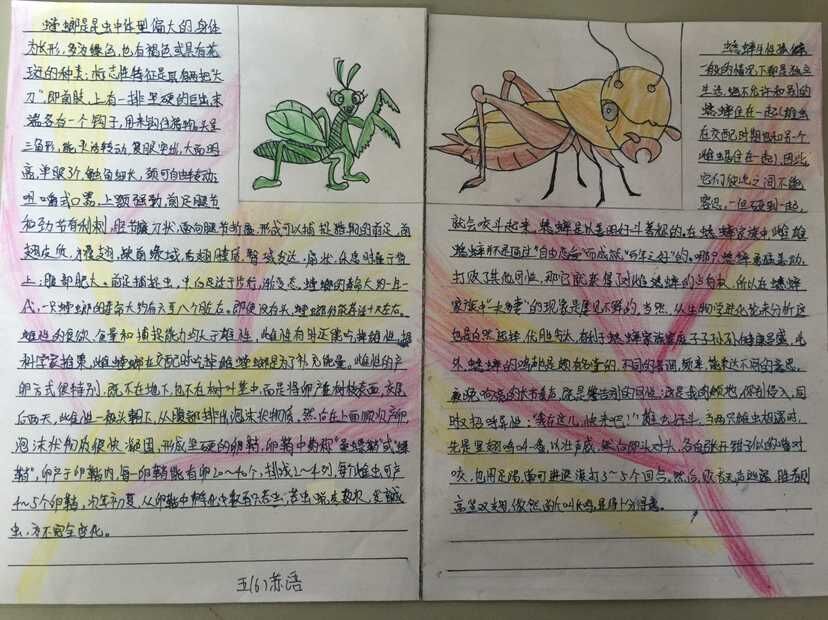 螳螂是昆虫中体型偏大的,身体
为长形,多为绿色,也有褐色或具有花
斑的种类,标志性特征是具有两把“大
刀”,即前肢,上有一排坚硬的
端各有一个钩子,用来钩住猎物,头呈
三角形,能灵活转动,复眼突出,大而明
亮,单眼3个,触角细长,颈可自由转动,
咀嚼式口器,上颚强劲,前足腿节
和胫节有利刺,胫节镰刀状,向腿节折叠,形成可以捕捉猎物的前足,前
翅皮质,为覆翅,缺前缘域,后翅膜质,臀域发达,扇状,休息时叠于背
上;腹部肥大。
代,一只螳螂的寿命大约有六至八个月左右。即使没有头,螳螂仍能存活十天左右。
雌性的食欲、食量和捕捉能力均大于雄性,雌性有时还能吃掉雄性,据
科学家推测,雌螳螂在交配时吃掉雄螳螂是为了补充能量。雌性的产
卵方式很特别,既不在地下,也不在树叶里中,而是将卵产在树枝表面,交尾
后两天,雌性一般头朝下,从腹部排出泡沫状物质,然后在上面顺次产卵,
泡沫状物质很快凝固,形成坚硬的卵鞘,
鞘”,卵产于卵鞘内,每一卵鞘能有卵20~40个,排成2~4列,每个雌虫可产
4~5个卵鞘,次年初夏,从卵鞘中孵化出数百只若虫,若虫蜕皮数次,变成
虫,为不完全变化。
五(6)苏语
蟋蟀
一般的情况下都是独立
生活,绝不允许和别的
蟋蟀住在一起(雄虫
在交配时期也和另一个
雌蟋居住在一起),因此
它们彼此之间不能
容忍,一旦碰到一起,
就会咬斗起来,蟋蟀是以善鸣好斗著称的,在蟋蟀家族中,雌雄
蟋蟀并不是通过“自由恋爱”而成就“百年之好”的。哪只蟋蟀勇猛善斗,
打败了其他同性,那它就获得了对雌蟋蟀的占有权,所以在蟋蟀
家族中“一夫多妻”的现象是屡见不鲜的。当然,从生物学进化论来分析这
也是自然选择,优胜劣汰,有利于蟋蟀家族后子子孙孙健康昌盛,此
外,蟋蟀的鸣声也是颇有名堂的,不同的音调、频率,能表达不同的意思,
夜晚响亮的长节奏声,既是警告别的同性:这是我的领地,你别侵入,同
时又招呼异性:“我在这儿,快来吧!”雄虫好斗,当两只雄虫相遇时,
先是竖翅鸣叫一番,以壮声威,然后即头对头,各自张开钳子似的嘴对
咬,也用足踢,常可进退滚打3~5个回合。然后,败者无声逃逸,胜者则
高竖双翅,傲然的叫长鸣,显得十分得意。